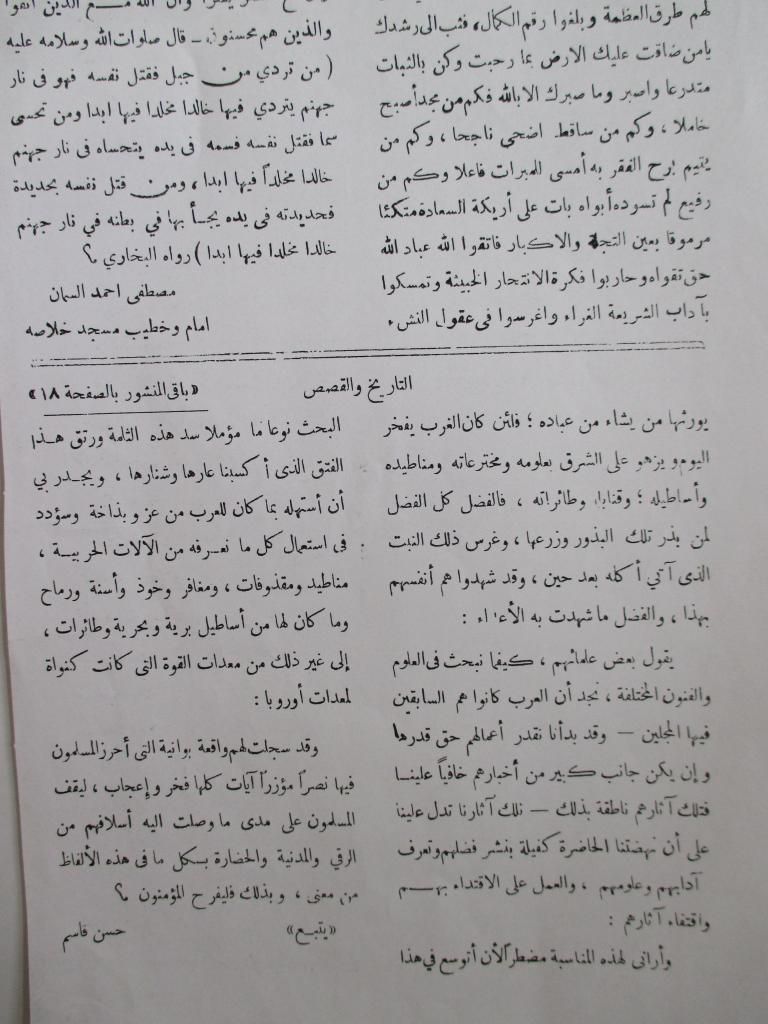 لهم طرق العظمة وبلغوا رقم الكمال، فثب الى رشدك
يامن ضاقت عليك الارض بما رحبت وكن بالثبات
متدرعا واصبر وما صبرك الا بالله فكم من مجد أصبح
خاملا، وكم من ساقط اضحى ناجحا، وكم من
يتيم برح الفقر به أمسى للمبرات فاعلا وكم من
رفيع لم تسوده أبواه بات على أريكة السعادة متكئا
مرموقا بعين التجلة والاكبار فاتقوا الله عباد الله
حق تقواه وحاربوا فكرة الانتحار الخبيثة وتمسكوا
بآداب الشريعة الغراء واغرسوا فى عقول النشء
والذين هم محسنون ـ قال صلوات الله وسلامه عليه
( من تردي من جبل فقتل نفسه فهو فى نار
جهنم يتردي فيها خالدا مخلدا فيها ابدا ومن تحسى
سما فقتل نفسه فسمه فى يده يتحساه فى نار جهنم
خالدا مخلداً فيها ابدا، ومن قتل نفسه بحديدة
فحديدته فى يده يجأ بها في بطنه في نار جهنم
خالدا مخلدا فيها ابدا ) رواه البخاري ؟
مصطفى احمد السمان
امام وخطيب مسجد خلاصه
التاريخ والقصص
«باقى المنشور بالصفحة ١٨»
يورثها من يشاء من عباده ؛ فلئن كان الغرب يفخر
اليوم ويزهو على الشرق بعلومه ومخترعاته ومناطيده
وأساطيله ؛ وقنابله وطائراته ، فالفضل كل الفضل
لمن بذر تلك البذور وزرعها ، وغرس ذلك النبت
الذى آتي أكله بعد حين ، وقد شهدوا هم أنفسهم
بهذا ، والفضل ما شهدت به الأعداء :
يقول بعض علمائهم ، كيفما نبحث فى العلوم
والفنون المختلفة ، نجد أن العرب كانوا هم السابقين
فيها المجلين — وقد بدأنا نقدر أعمالهم حق قدرها
وإن يكن جانب كبير من أخبارهم خافياً علينا
فتلك آثارهم ناطقة بذلك — تلك آثارنا تدل علينا
على أن نهضتنا الحاضرة كفيلة بنشر فضلهم وتعرف
آدابهم وعلومهم ، والعمل على الاقتداء بهم
واقتفاء آثارهم :
وأرانى لهذه المناسبة مضطراً لأن أتوسع في هذا
البحث نوعا ما مؤملا سد هذه الثلمة ورتق هذا
الفتق الذى أكسبنا عارها وشنارها ، ويجدر بي
أن أستهله بما كان للعرب من عز وبذاخة وسؤدد
فى استعمال كل ما نعرفه من الآلات الحربية ،
مناطيد ومقذوفات ، ومغافر وخوذ وأسنة ورماح
وما كان لها من أساطيل برية وبحرية وطائرات ،
إلى غير ذلك من معدات القوة التى كانت كنواة
لمعدات أوروبا :
وقد سجلت لهم واقعة بوانية التى أحرز المسلمون
فيها نصراً مؤزراً آيات كلها فخر وإعجاب ، ليقف
المسلمون على مدى ما وصلت اليه أسلافهم من
الرقي والمدنية والحضارة بسكل ما فى هذه الألفاظ
من معنى ، وبذلك فليفرح المؤمنون ؟
«يتبع»
حسن قاسم